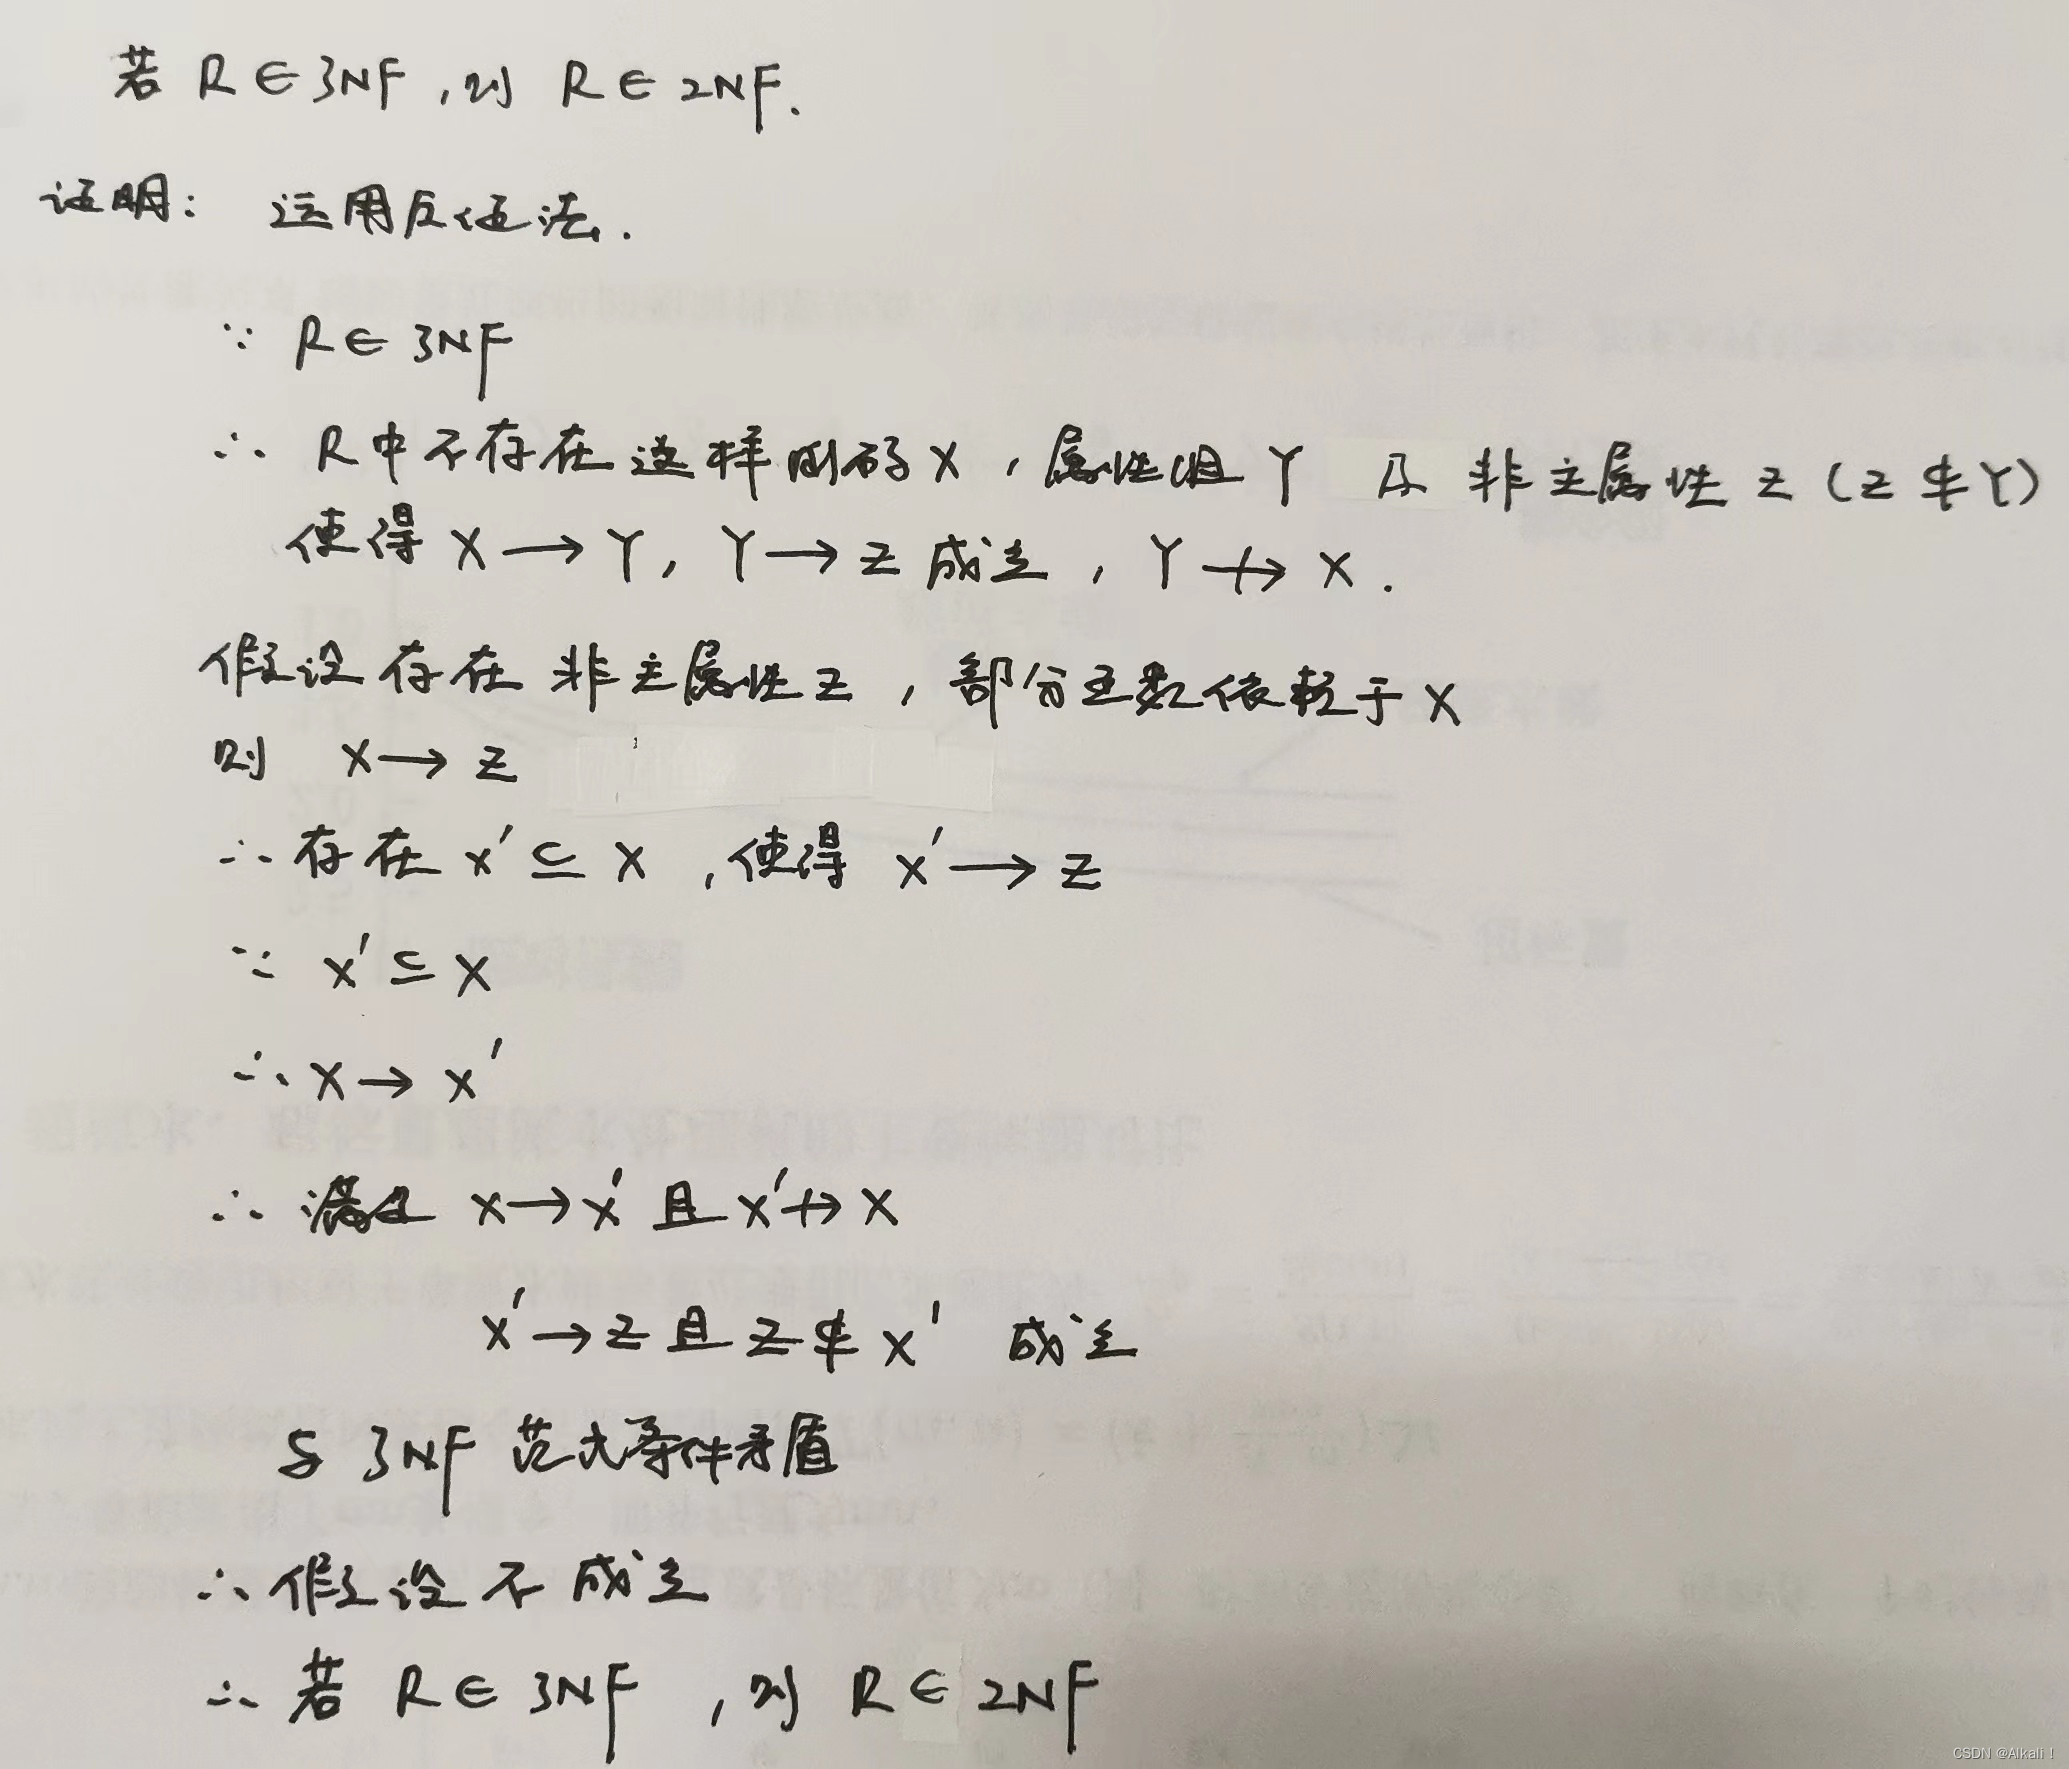 若 R∈3NF,则 R∈2NF.
证明: 运用反证法.
∵ R∈3NF
∴ R中不存在这样的码X,属性组Y 及 非主属性Z(Z⊈Y)
使得 X→Y, Y→Z 成立, Y↛X.
假设存在 非主属性Z,部分函数依赖于X
则 X→Z
∴存在 X'⊆X,使得 X'→Z
∵ X'⊆X
∴X→X'
∴ 满足 X→X' 且 X'↛X
X'→Z 且 Z⊈X' 成立
与 3NF 范式条件矛盾
∴假设不成立
∴若 R∈3NF,则 R∈2NF
CSDN @Alkali!